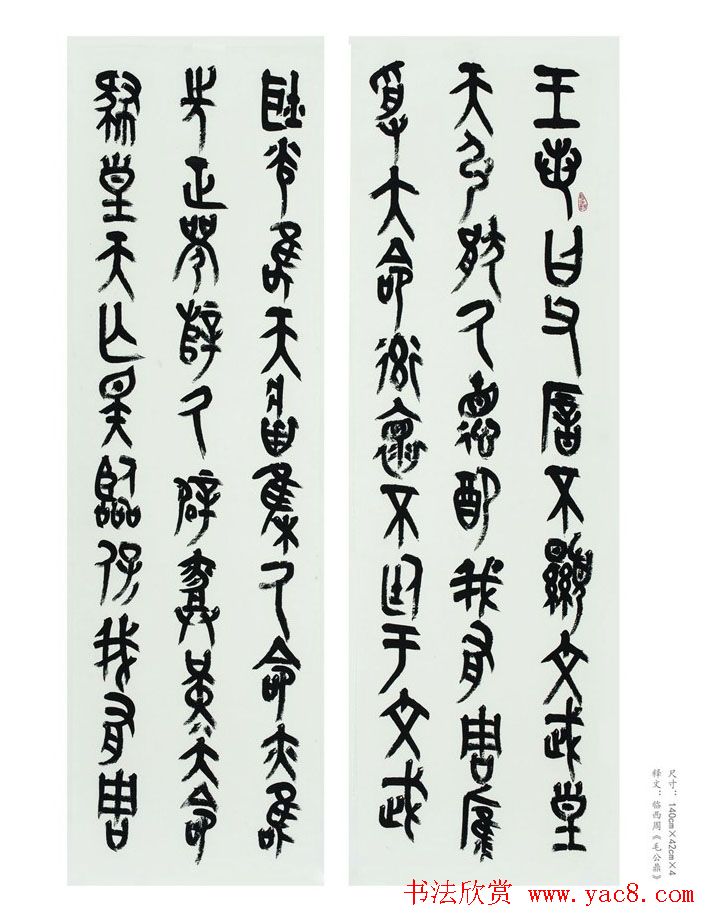 王若曰父不顯文武皇
天引猒氒德配我有周膺
受大命率懷不閈于文武
耿光唯天將集氒命亦唯
先正辥氒辟堇大命
肆皇天亡斁臨保我有周
尺寸：140cm×42cm×4
释文：临西周《毛公鼎》
书法欣赏 www.yac8.com